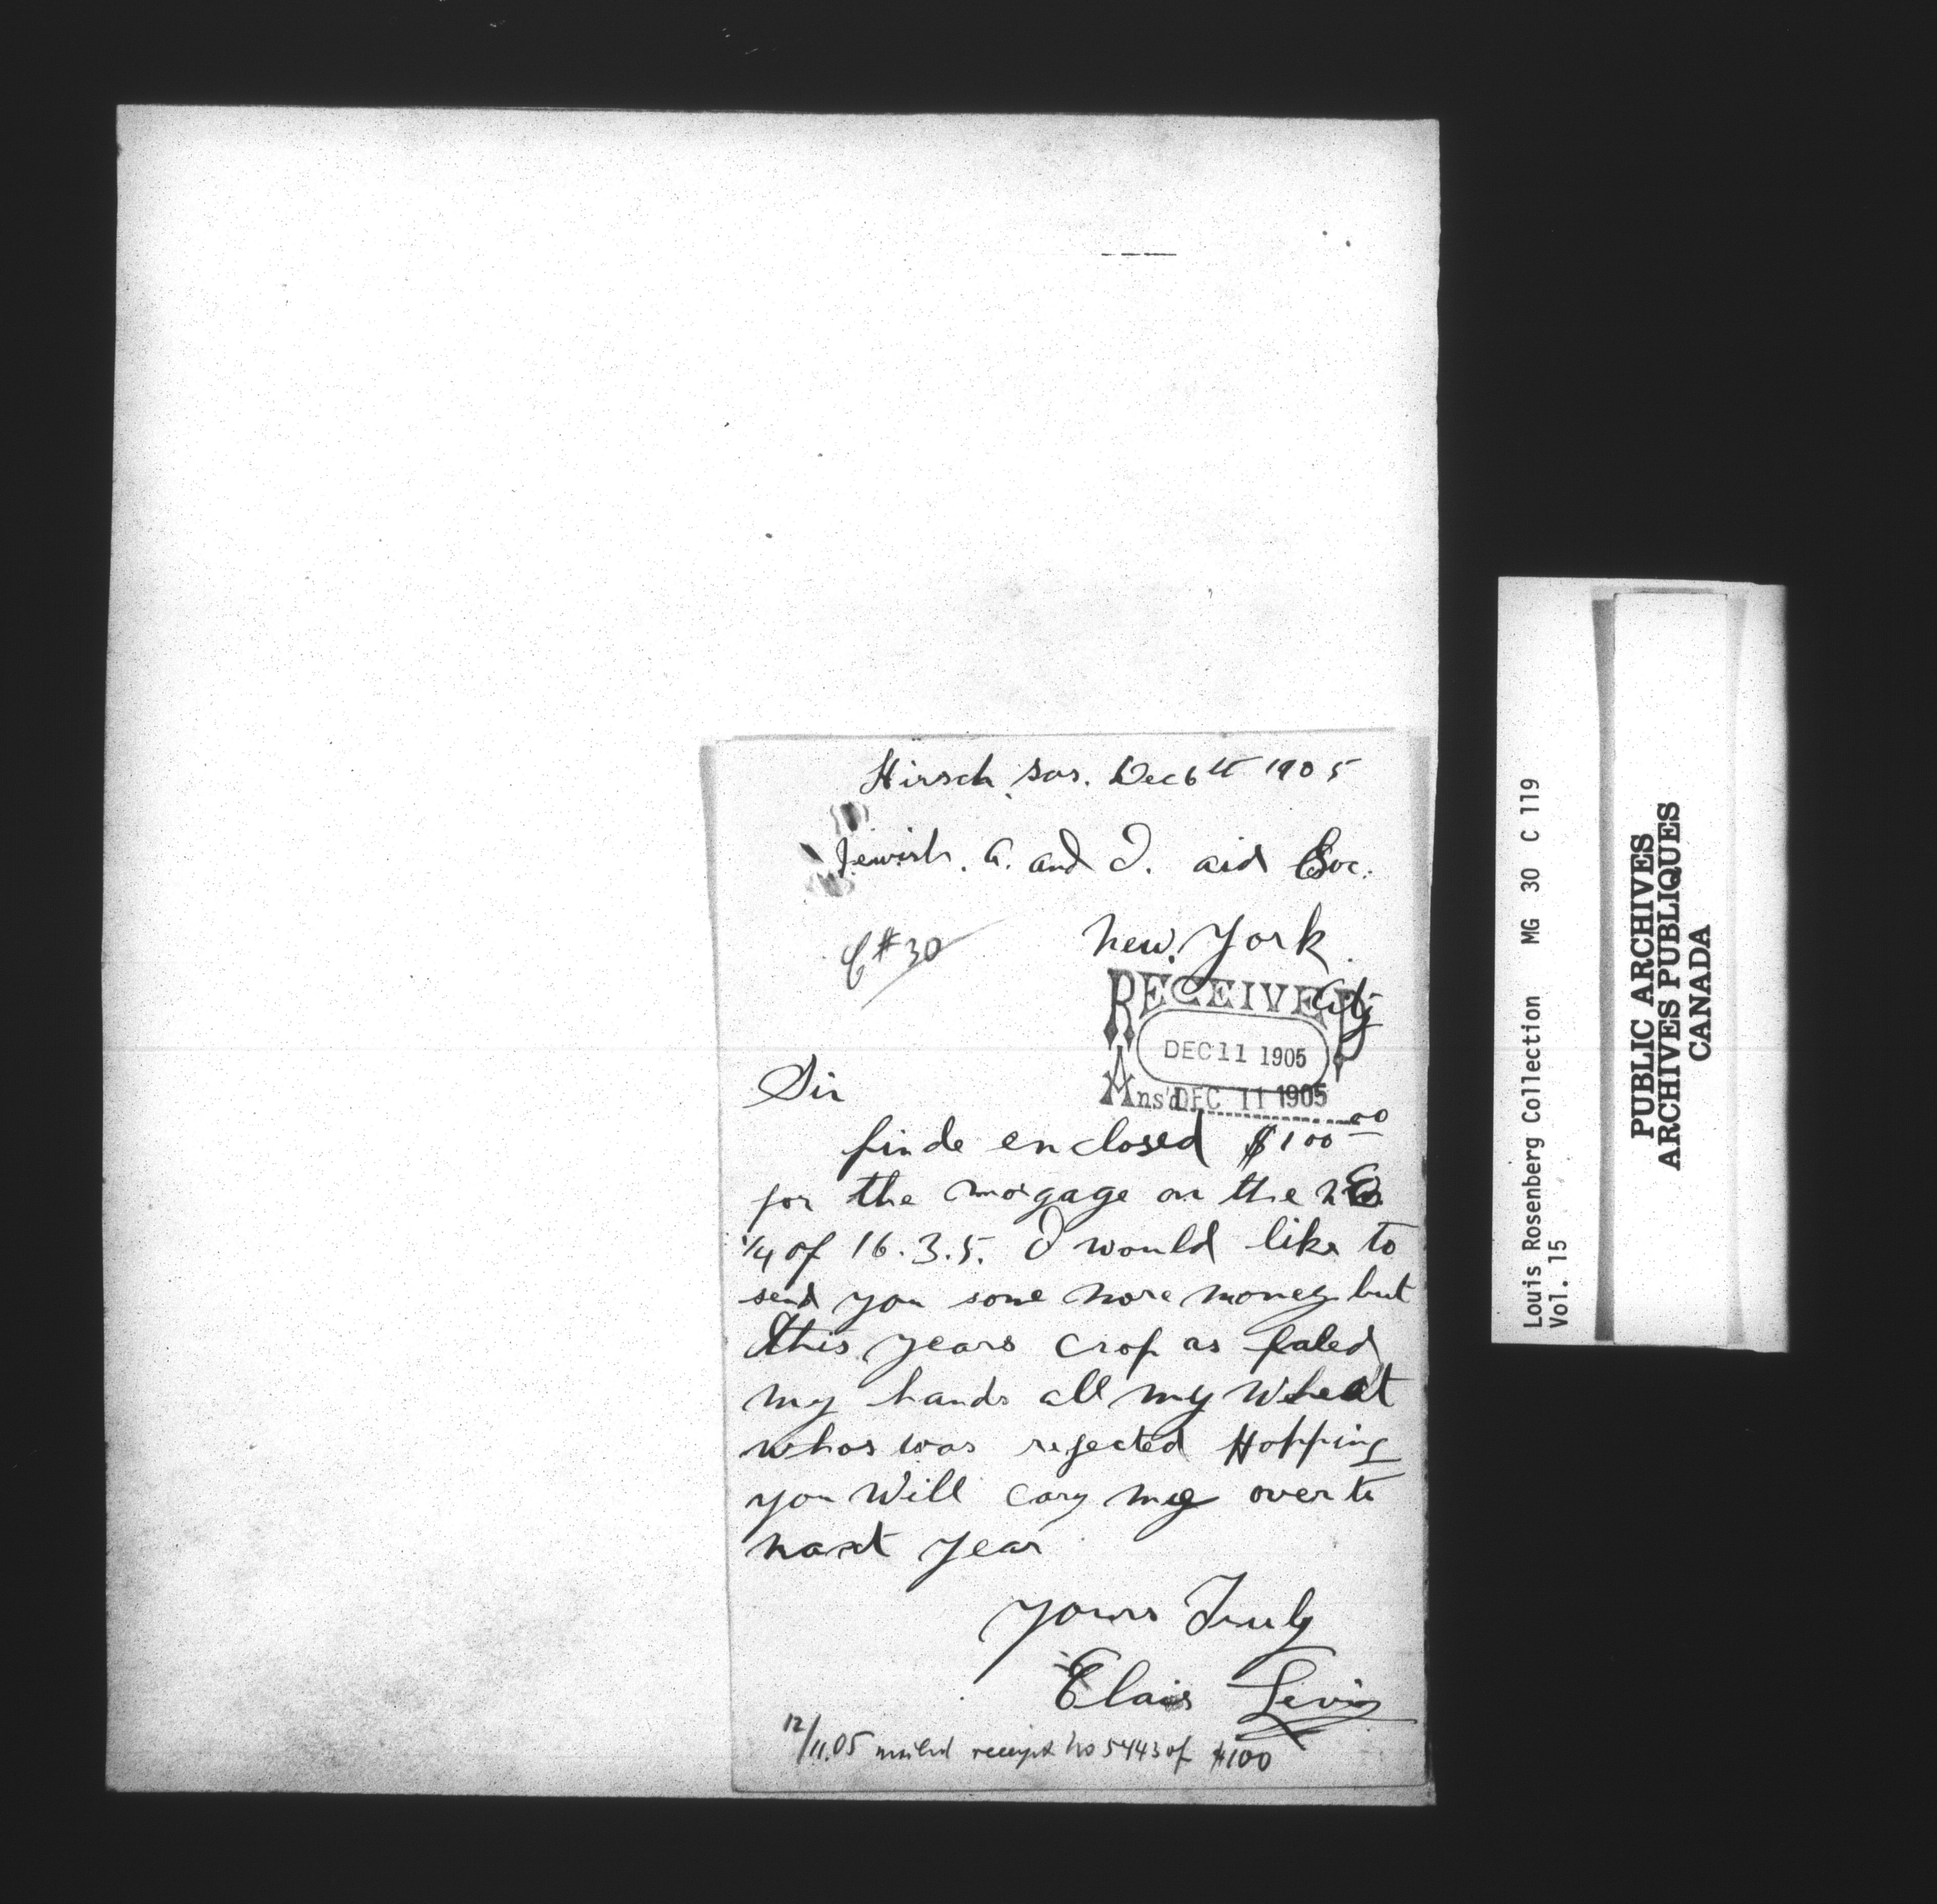 Hirsch, Sas. Dec 6th 1905
Jewish. A. and I. aid Soc.
New York.
City
C #30
RECEIVED
DEC 11 1905
Ans'd DEC 11 1905
Sir
finde enclosed $100 00
for the morgage on the
1/4 of 16.3.5. I would like to
send you some more money but
this years crop as faled
my hands all my wheat
whas was rejected Hopping
you Will cary me over to
naxt year
yours Truly
Elais Levin
12/11.05 mailed receipt No 5443 of $100
Louis Rosenberg Collection MG 30 C 119
Vol. 15
PUBLIC ARCHIVES
ARCHIVES PUBLIQUES
CANADA